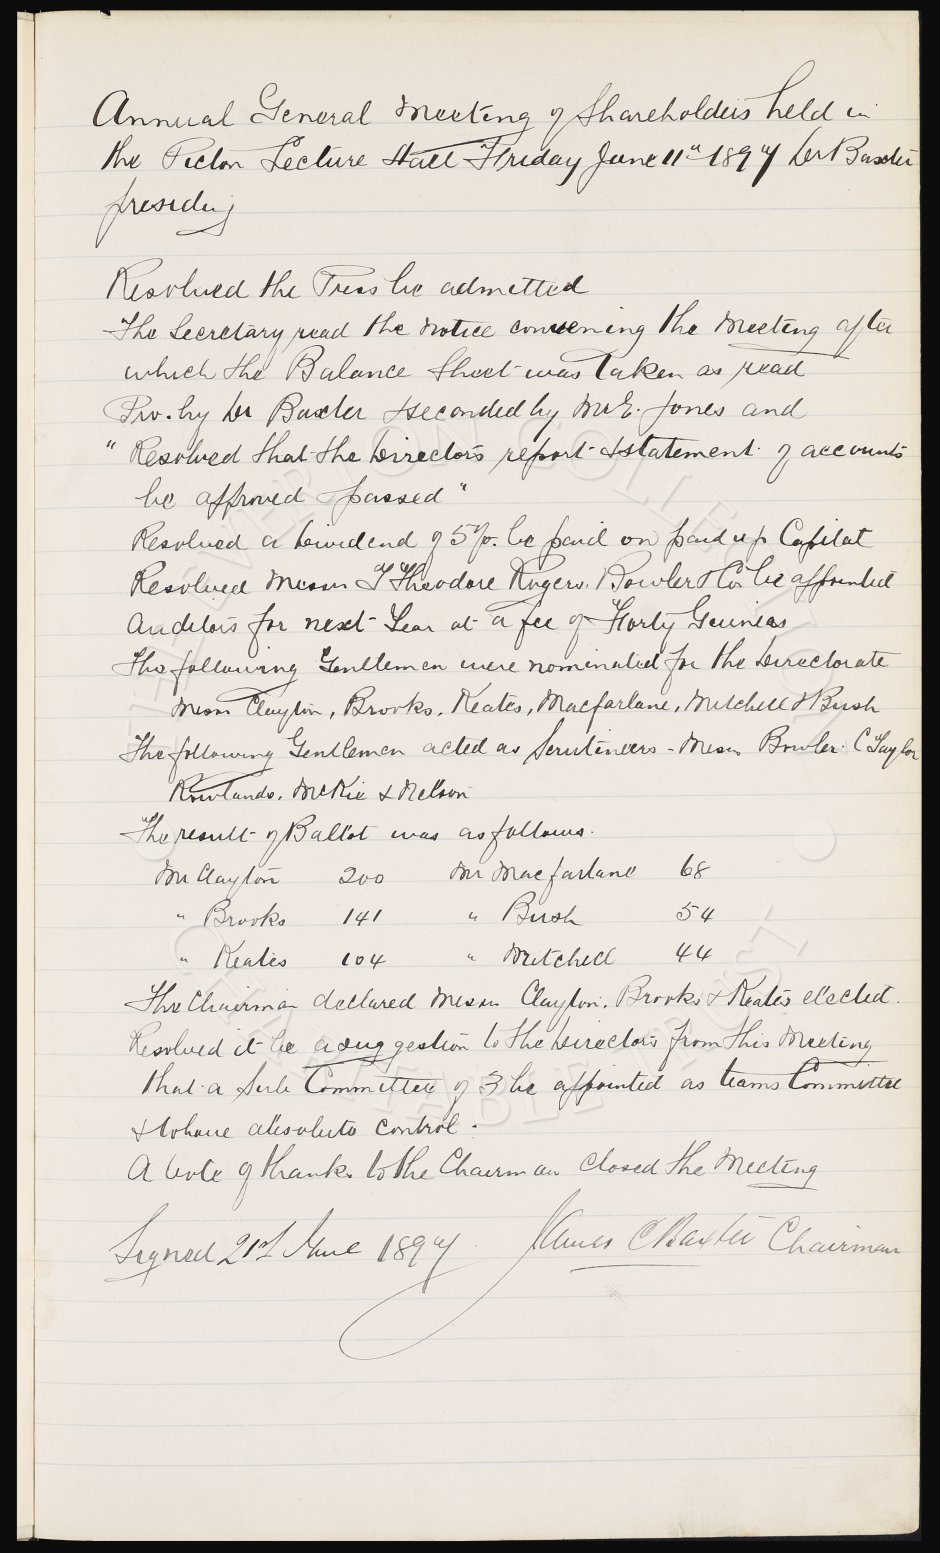 Annual General Meeting of Shareholders held in
the Picton Lecture Hall Friday June 11th 1897 Dr Baxter
presiding
Resolved the Press be admitted
The Secretary read the notice convening the Meeting after
which the Balance Sheet was taken as read
Pro. by Dr Baxter seconded by Mr E. Jones and
"Resolved that the Directors report & statement of accounts
be approved & passed"
Resolved a Dividend of 5%. be paid on paid up Capital
Resolved Messrs T Theodore Rogers. Bowler & Co. be appointed
Auditors for next Year at a fee of Forty Guineas
The following Gentlemen were nominated for the Directorate
Messrs Clayton, Brooks, Keates, Macfarlane, Mitchell & Bush
The following Gentlemen acted as Scrutineers - Messrs Bowler. C Taylor
Rowlands. McKie & Nelson
The result of Ballot was as follows.
Mr Clayton 200 Mr Macfarlane 68
" Brooks 141 " Bush 54
" Keates 104 " Mitchell 44
The Chairman declared Messrs Clayton. Brooks & Keates elected.
Resolved it be a suggestion to the Directors from this Meeting
that a Sub Committee of 3 be appointed as teams Committee
& to have absolute control.
A Vote of thanks to the Chairman closed the Meeting
Signed 21st June 1897 James C Baxter Chairman
THE EVERTON COLLECTION
CHARITABLE TRUST